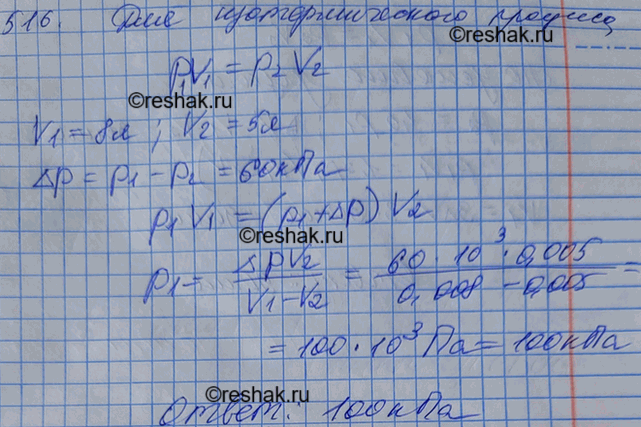 516. Для изотермического процесса
©reshak.ru
p₁V₁ = p₂V₂
©reshak.ru
V₁ = 8л ; V₂ = 5л
Δp = p₁ - p₂ = 60кПа
©reshak.ru
p₁V₁ = (p₁+Δp) V₂
p₁ = ΔpV₂ / (V₁-V₂) = 60 · 10³ · 0,005 / (0,008 - 0,005) =
= 100 · 10³ Па = 100кПа
©reshak.ru
©reshak.ru
Ответ: 100кПа